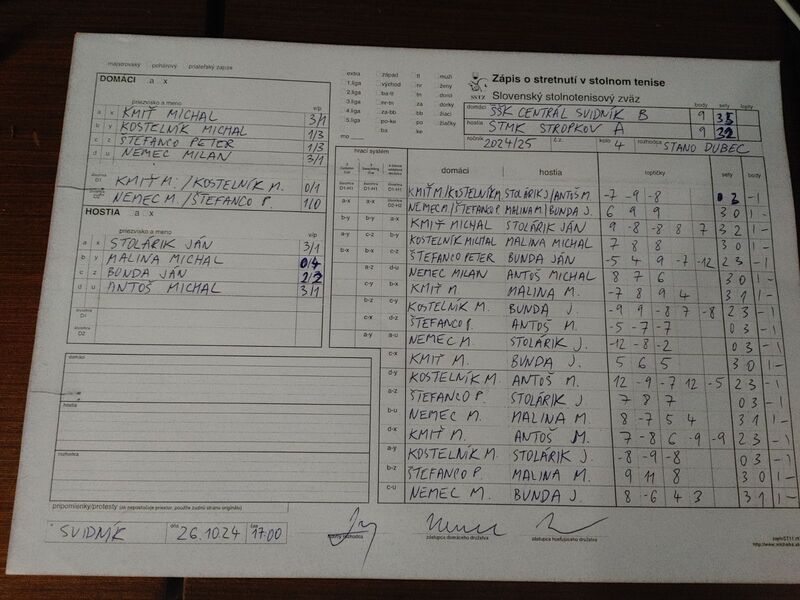 majstrovský pohárový priateľský zápas
DOMÁCI a x
priezvisko a meno v/p
a x KMIŤ MICHAL 3/1
b y KOSTELNÍK MICHAL 1/3
c z ŠTEFANCO PETER 1/3
d u NEMEC MILAN 3/1
KMIŤ M. / KOSTELNÍK M. 0/1
NEMEC M. / ŠTEFANCO P. 1/0
HOSTIA a x
priezvisko a meno v/p
a x STOLÁRIK JÁN 3/1
b y MALINA MICHAL 0/4
c z BUNDA JÁN 2/2
d u ANTOŠ MICHAL 3/1
štvorhra D1
štvorhra D2
domáci
hostia
rozhodca
pripomienky/protesty (ak nepostačuje priestor, použite zadnú stranu originálu)
SVIDNÍK dňa 26.10.24 čas 17:00
hlavný rozhodca
zástupca domáceho družstva
zástupca hosťujúceho družstva
extra západ tl muži
1.liga východ nr ženy
2.liga ba-tt
3.liga nr-tn za dorky
4.liga za-bb bb žiaci
5.liga po-ke po žiačky
ba ke
mo
SSTZ
Zápis o stretnutí v stolnom tenise
Slovenský stolnotenisový zväz
body sety lopty
domáci ŠŠK CENTRÁL SVIDNÍK B 9
hostia ŠTMK STROPKOV A 9
ročník 2024/25 č.z. kolo 4 rozhodca STANO DUBEC
hrací systém
domáci hostia loptičky sety body
KMIŤ M/KOSTELNÍK M STOLÁRIK J/ANTOŠ M. -7 -9 -8 -1
a-x NEMEC M/ŠTEFANCO P MALINA M/BUNDA J. 6 9 9 3 0 1-
b-y KMIŤ MICHAL STOLÁRIK JÁN 9 -8 -8 8 7 3 2 1-
KOSTELNÍK MICHAL MALINA MICHAL 7 8 8 3 0 1-
ŠTEFANCO PETER BUNDA JÁN -5 4 9 -7 -12 2 3 -1
NEMEC MILAN ANTOŠ MICHAL 8 7 6 3 0 1-
KMIŤ M. MALINA M. -7 8 9 4 3 1 1-
KOSTELNÍK M. BUNDA J. -9 9 -8 7 -8 2 3 -1
ŠTEFANCO P. ANTOŠ M. -5 -7 -7 0 3 -1
NEMEC M. STOLÁRIK J. -12 -8 -2 0 3 -1
KMIŤ M. BUNDA J. 5 6 5 3 0 1-
KOSTELNÍK M. ANTOŠ M. 12 -9 -7 12 -5 2 3 -1
ŠTEFANCO P. STOLÁRIK J. 7 8 7 0 3 -1
NEMEC M. MALINA M. 8 -7 5 4 3 1 1-
KMIŤ M. ANTOŠ M. 7 -8 6 -9 -9 2 3 -1
KOSTELNÍK M. STOLÁRIK J. -8 -9 -8 0 3 -1
ŠTEFANCO P. MALINA M. 9 11 8 3 0 1-
NEMEC M. BUNDA J. 8 -6 4 3 3 1 1-